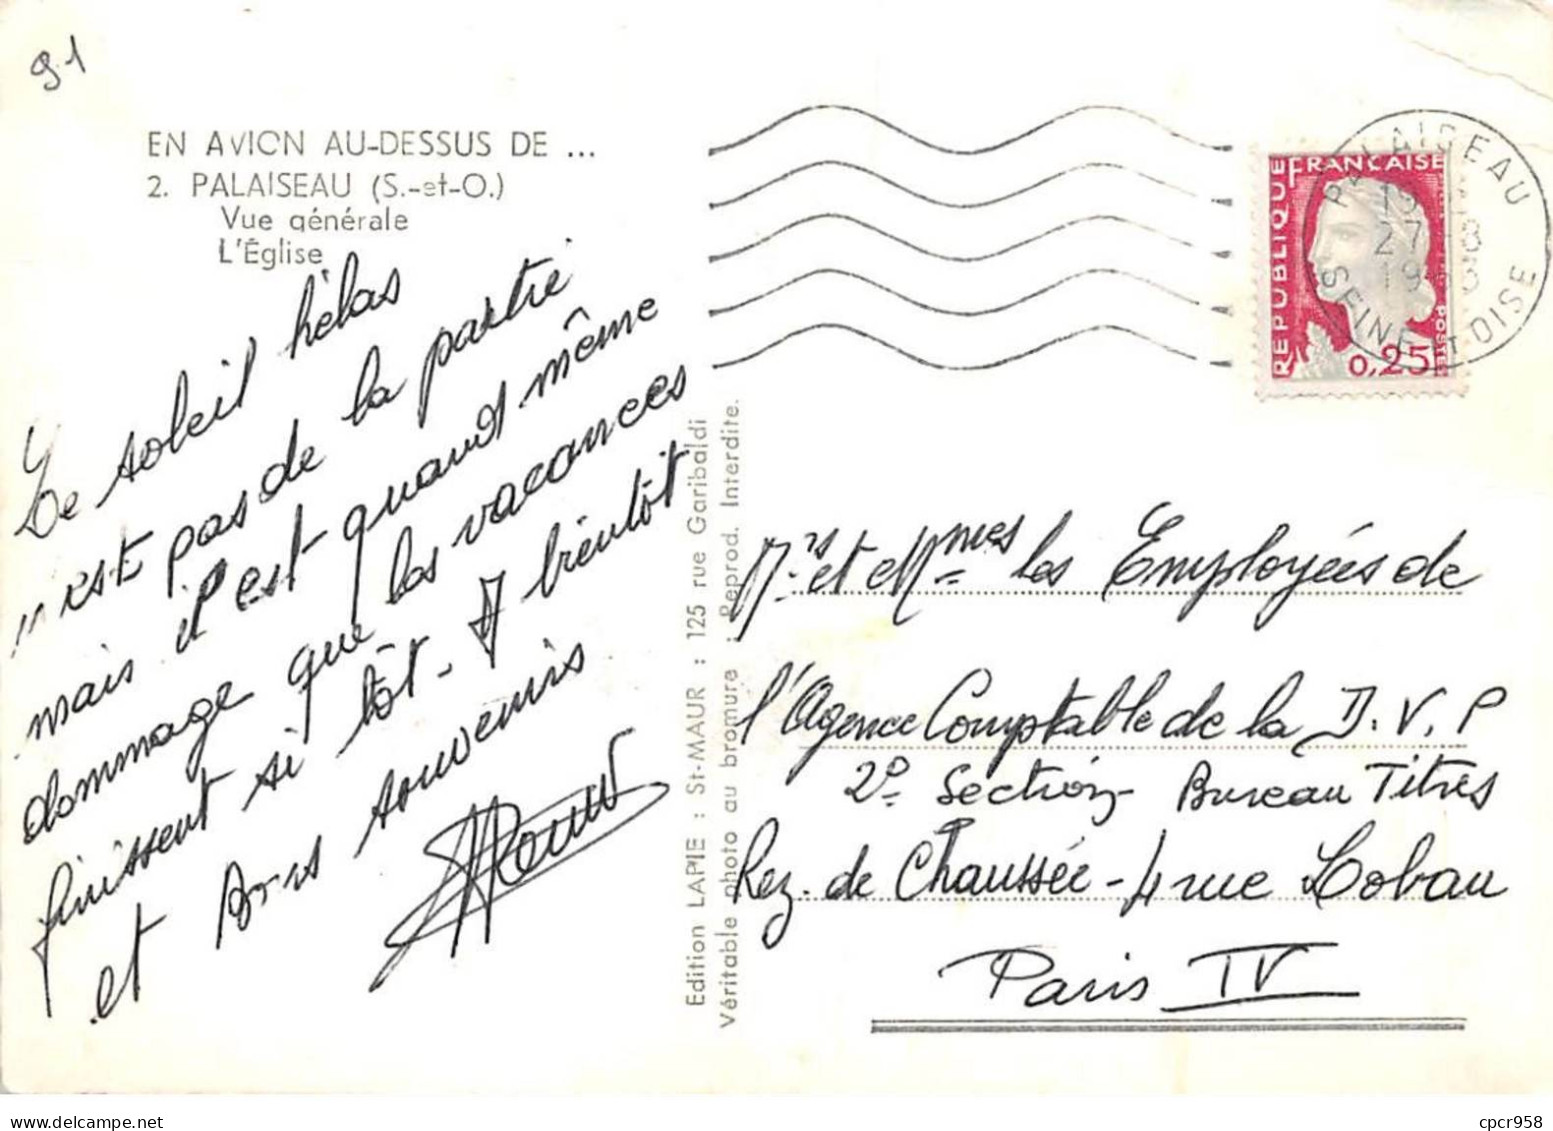 91
EN AVION AU-DESSUS DE ...
2. PALAISEAU (S.-et-O.)
Vue générale
L'Église
Le soleil hélas
n'est pas de la partie
mais il est quand même
dommage que les vacances
finissent si tôt - A bientôt
et Bons souvenirs
Edition LAPIE : St-MAUR : 125 rue Garibaldi
Véritable photo au bromure : Reprod. Interdite.
PALAISEAU
27 - 8
SEINE ET OISE
REPUBLIQUE FRANÇAISE
POSTES
0,25
Mrs et Mmes les Employées de
l'Agence Comptable de la D.V.P
2e Section Bureau Titres
Rez. de Chaussée - 4 rue Lobau
Paris IV
Delcampe.net
cpcr958